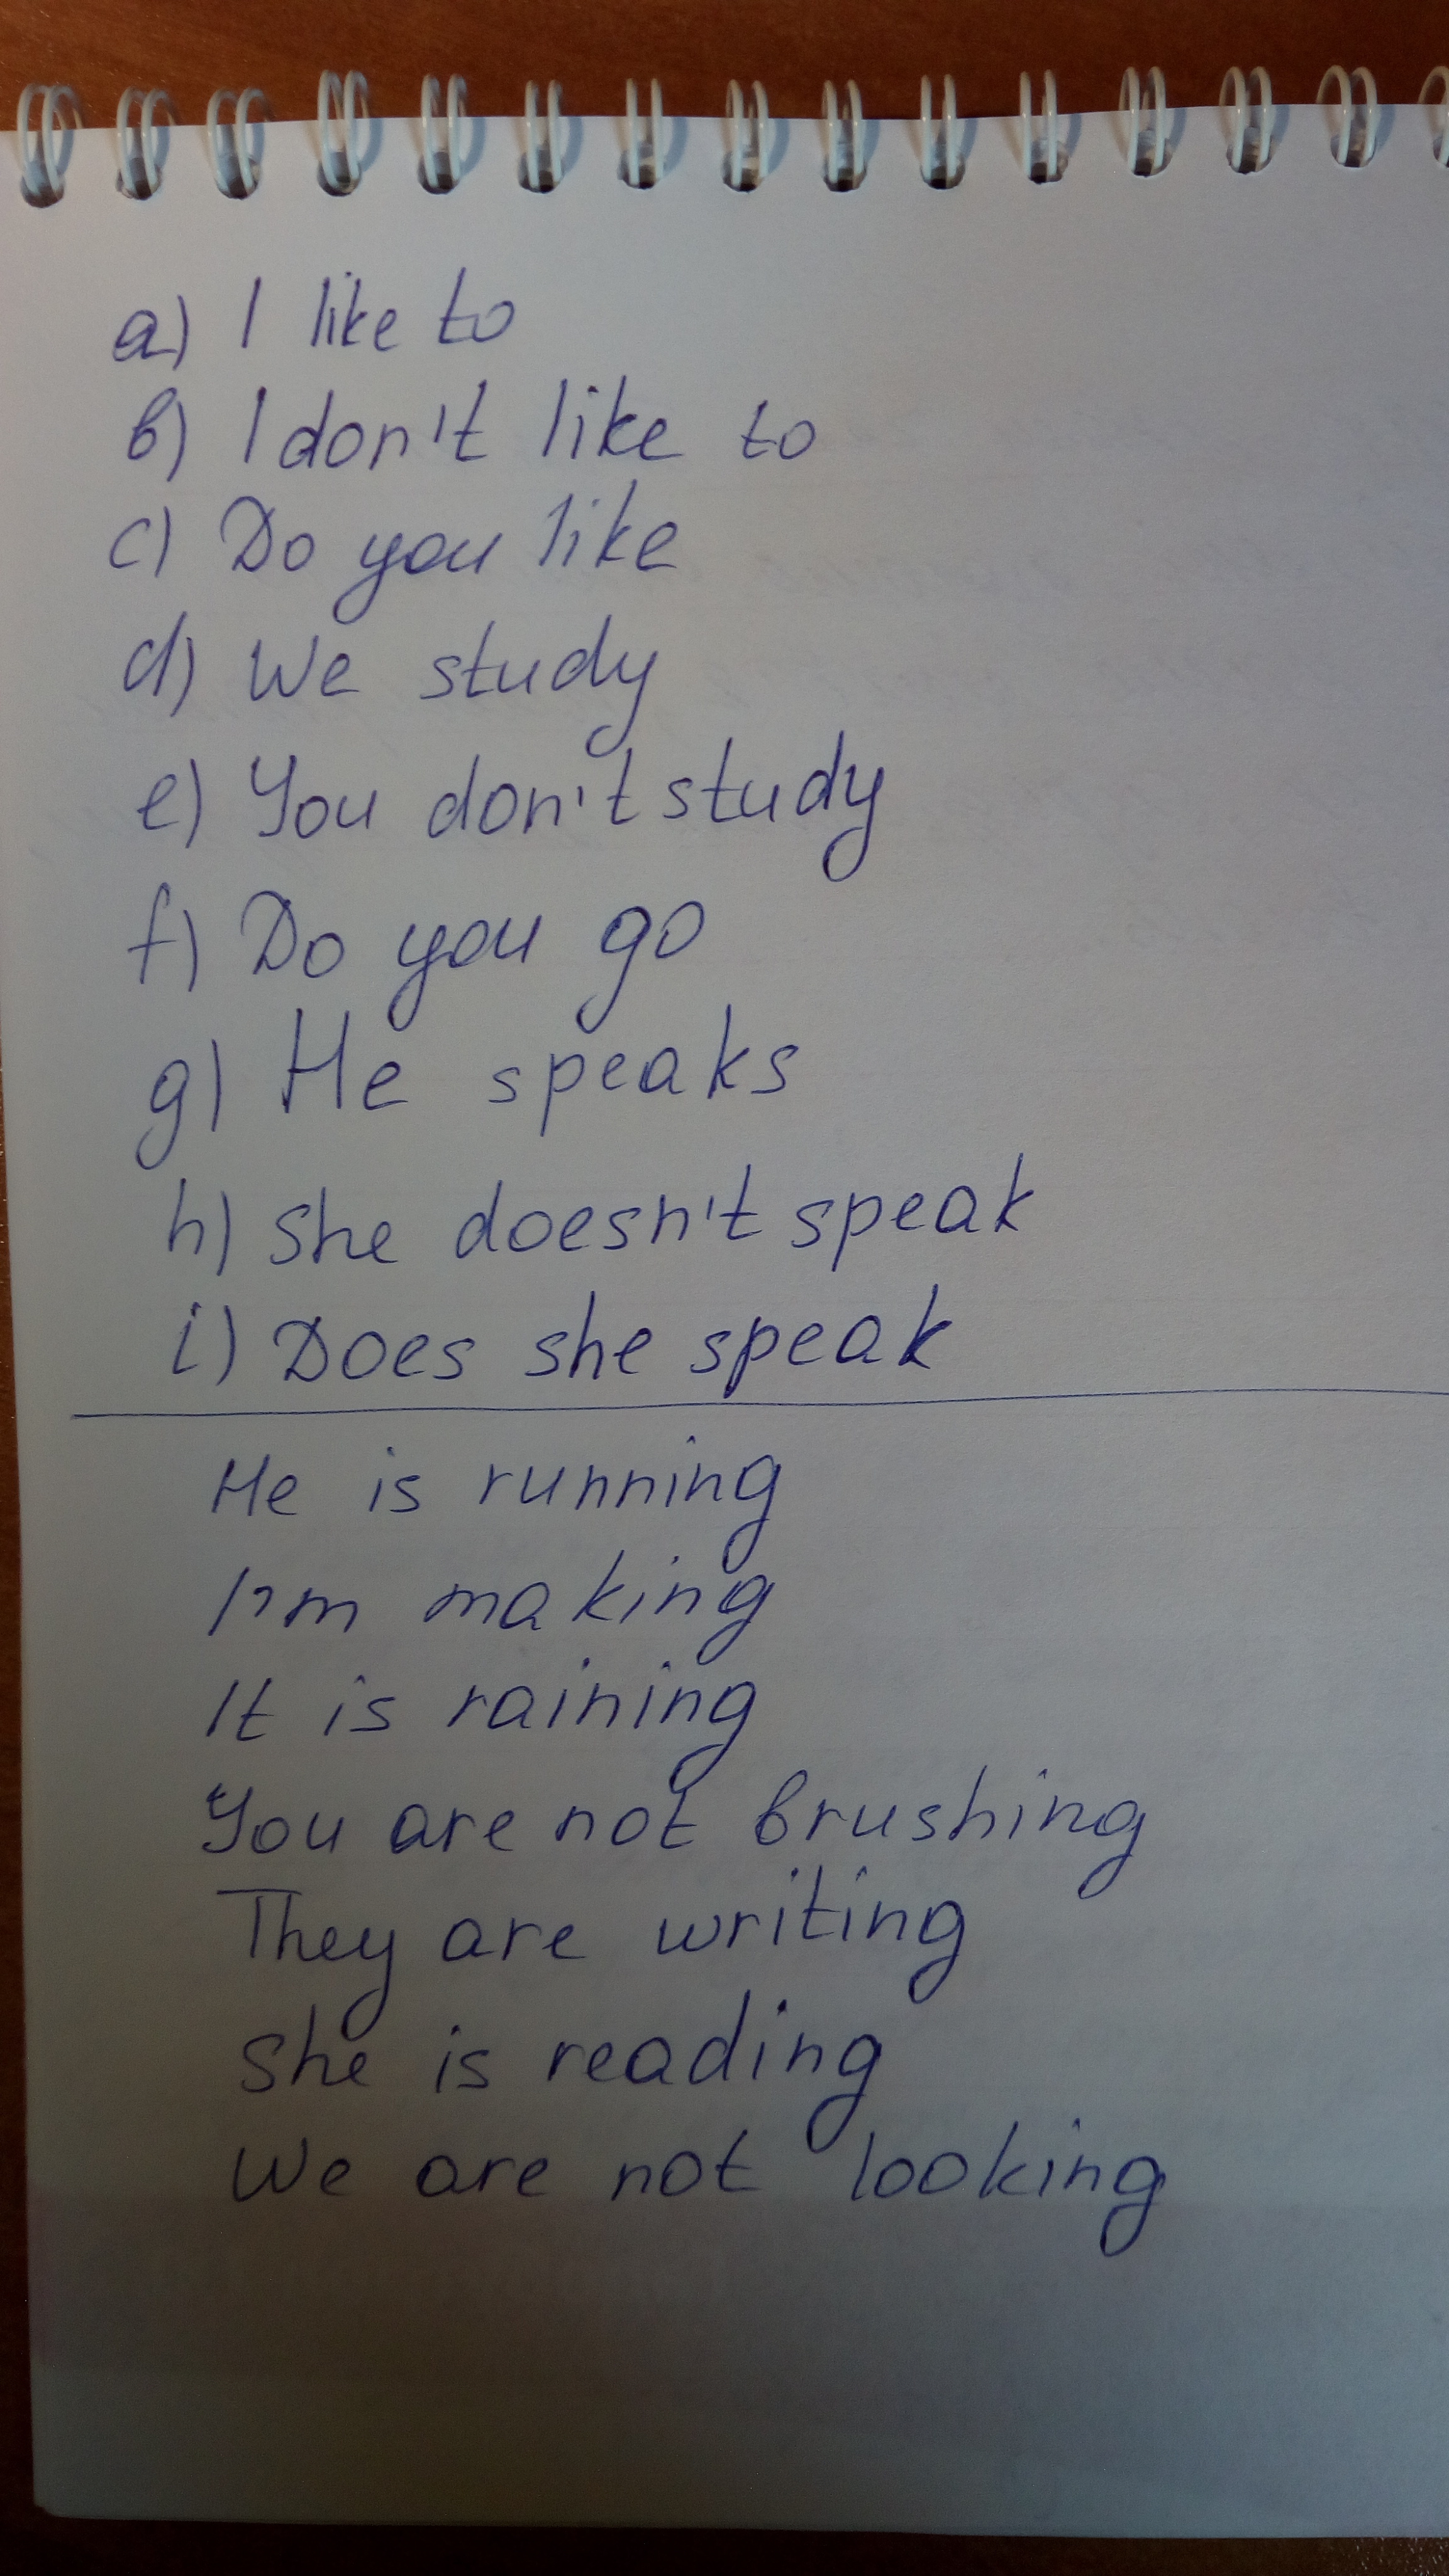 a) I like to
b) I don't like to
c) Do you like
d) We study
e) You don't study
f) Do you go
g) He speaks
h) She doesn't speak
i) Does she speak
He is running
I'm making
It is raining
You are not brushing
They are writing
She is reading
We are not looking